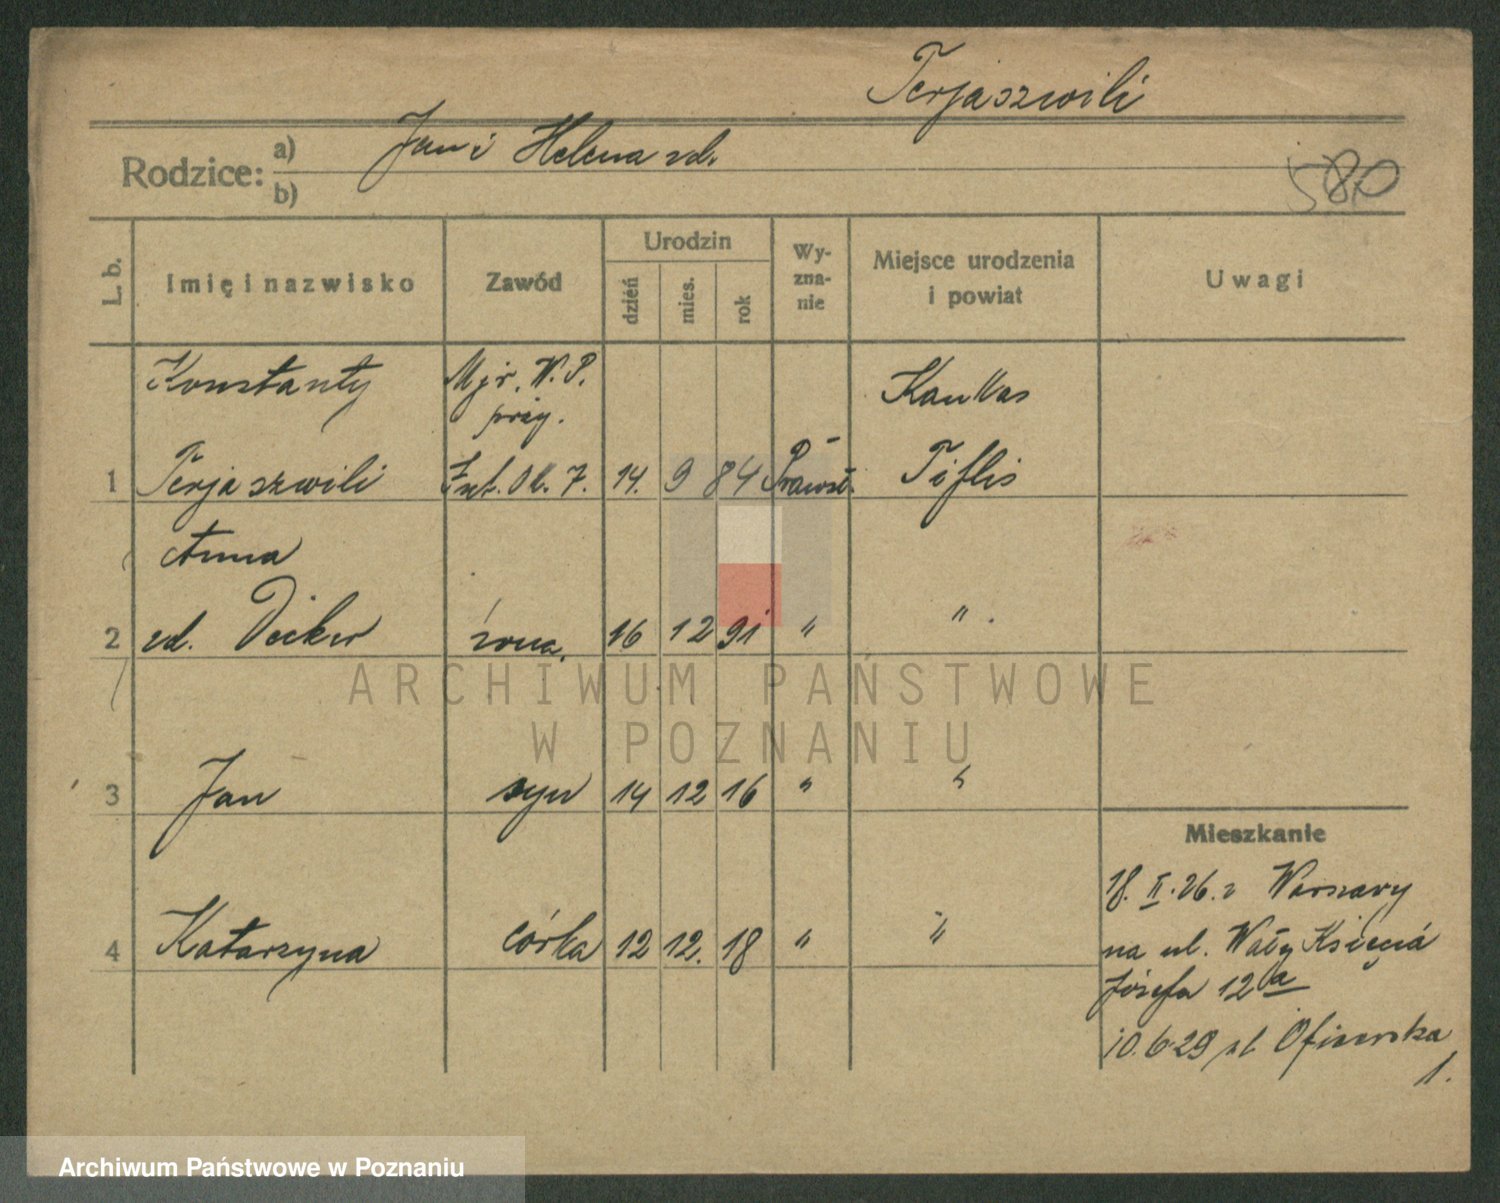 Terjaszwili
Rodzice: a) Jan i Helena zd.
b)
580
L. b.
Imię i nazwisko
Zawód
Urodzin
dzień
mies.
rok
Wy-
zna-
nie
Miejsce urodzenia
i powiat
Uwagi
Konstanty Mjr. W. P. Kaukas
przy.
1 Terjaszwili Int. Ok. 7. 14. 9 84 Prawosł. Tiflis
Anna
2 zd. żona. 16 12 91 " "
ARCHIWUM PAŃSTWOWE
W POZNANIU
3 Jan syn 14 12 16 " "
Mieszkanie
18. II. 26. z Warszawy
4 Katarzyna córka 12 12. 18 " "
na ul. Wały Księcia
Józefa 12a
10.6.29 pl. 
1.
Archiwum Państwowe w Poznaniu